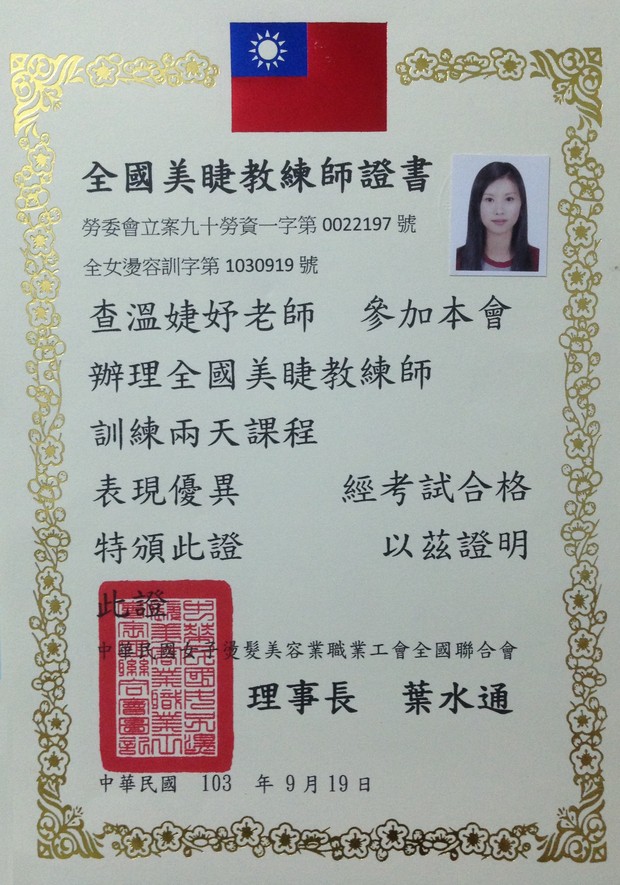 全國美睫教練師證書
勞委會立案九十勞資一字第 0022197 號
全女燙容訓字第 1030919 號
查溫婕妤老師 參加本會
辦理全國美睫教練師
訓練兩天課程
表現優異 經考試合格
特頒此證 以茲證明
此證
中華民國女子燙髮美容業職業工會全國聯合會
理事長 葉水通
中華民國 103 年 9 月 19 日